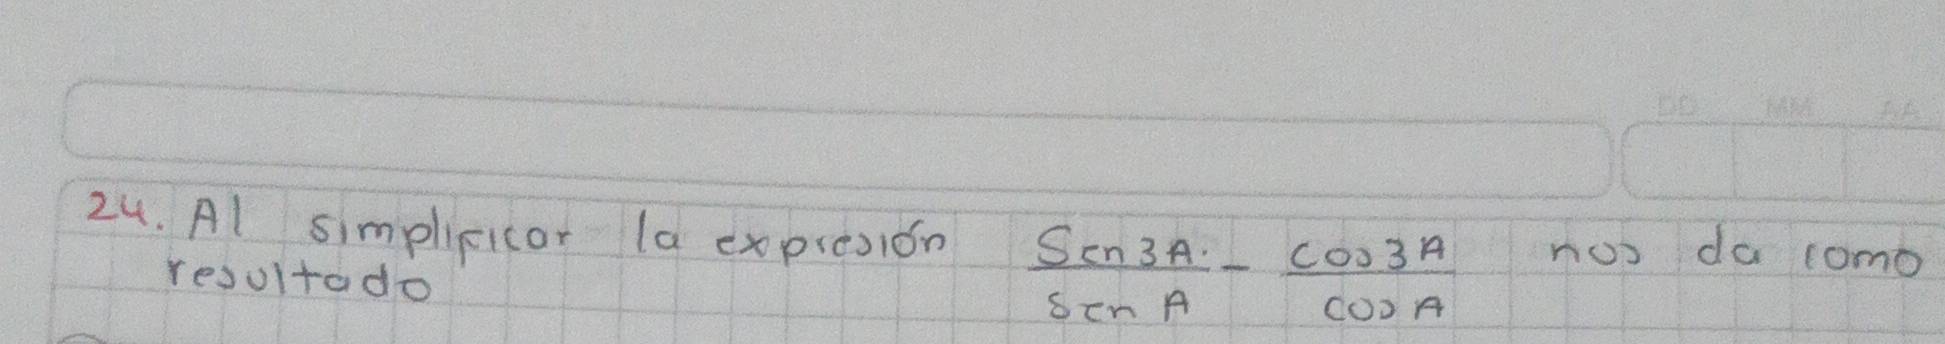 DD MM AA
24. Al simplificar la expresión Sen 3A. - cos 3A nos da como
sen A cos A
resultado